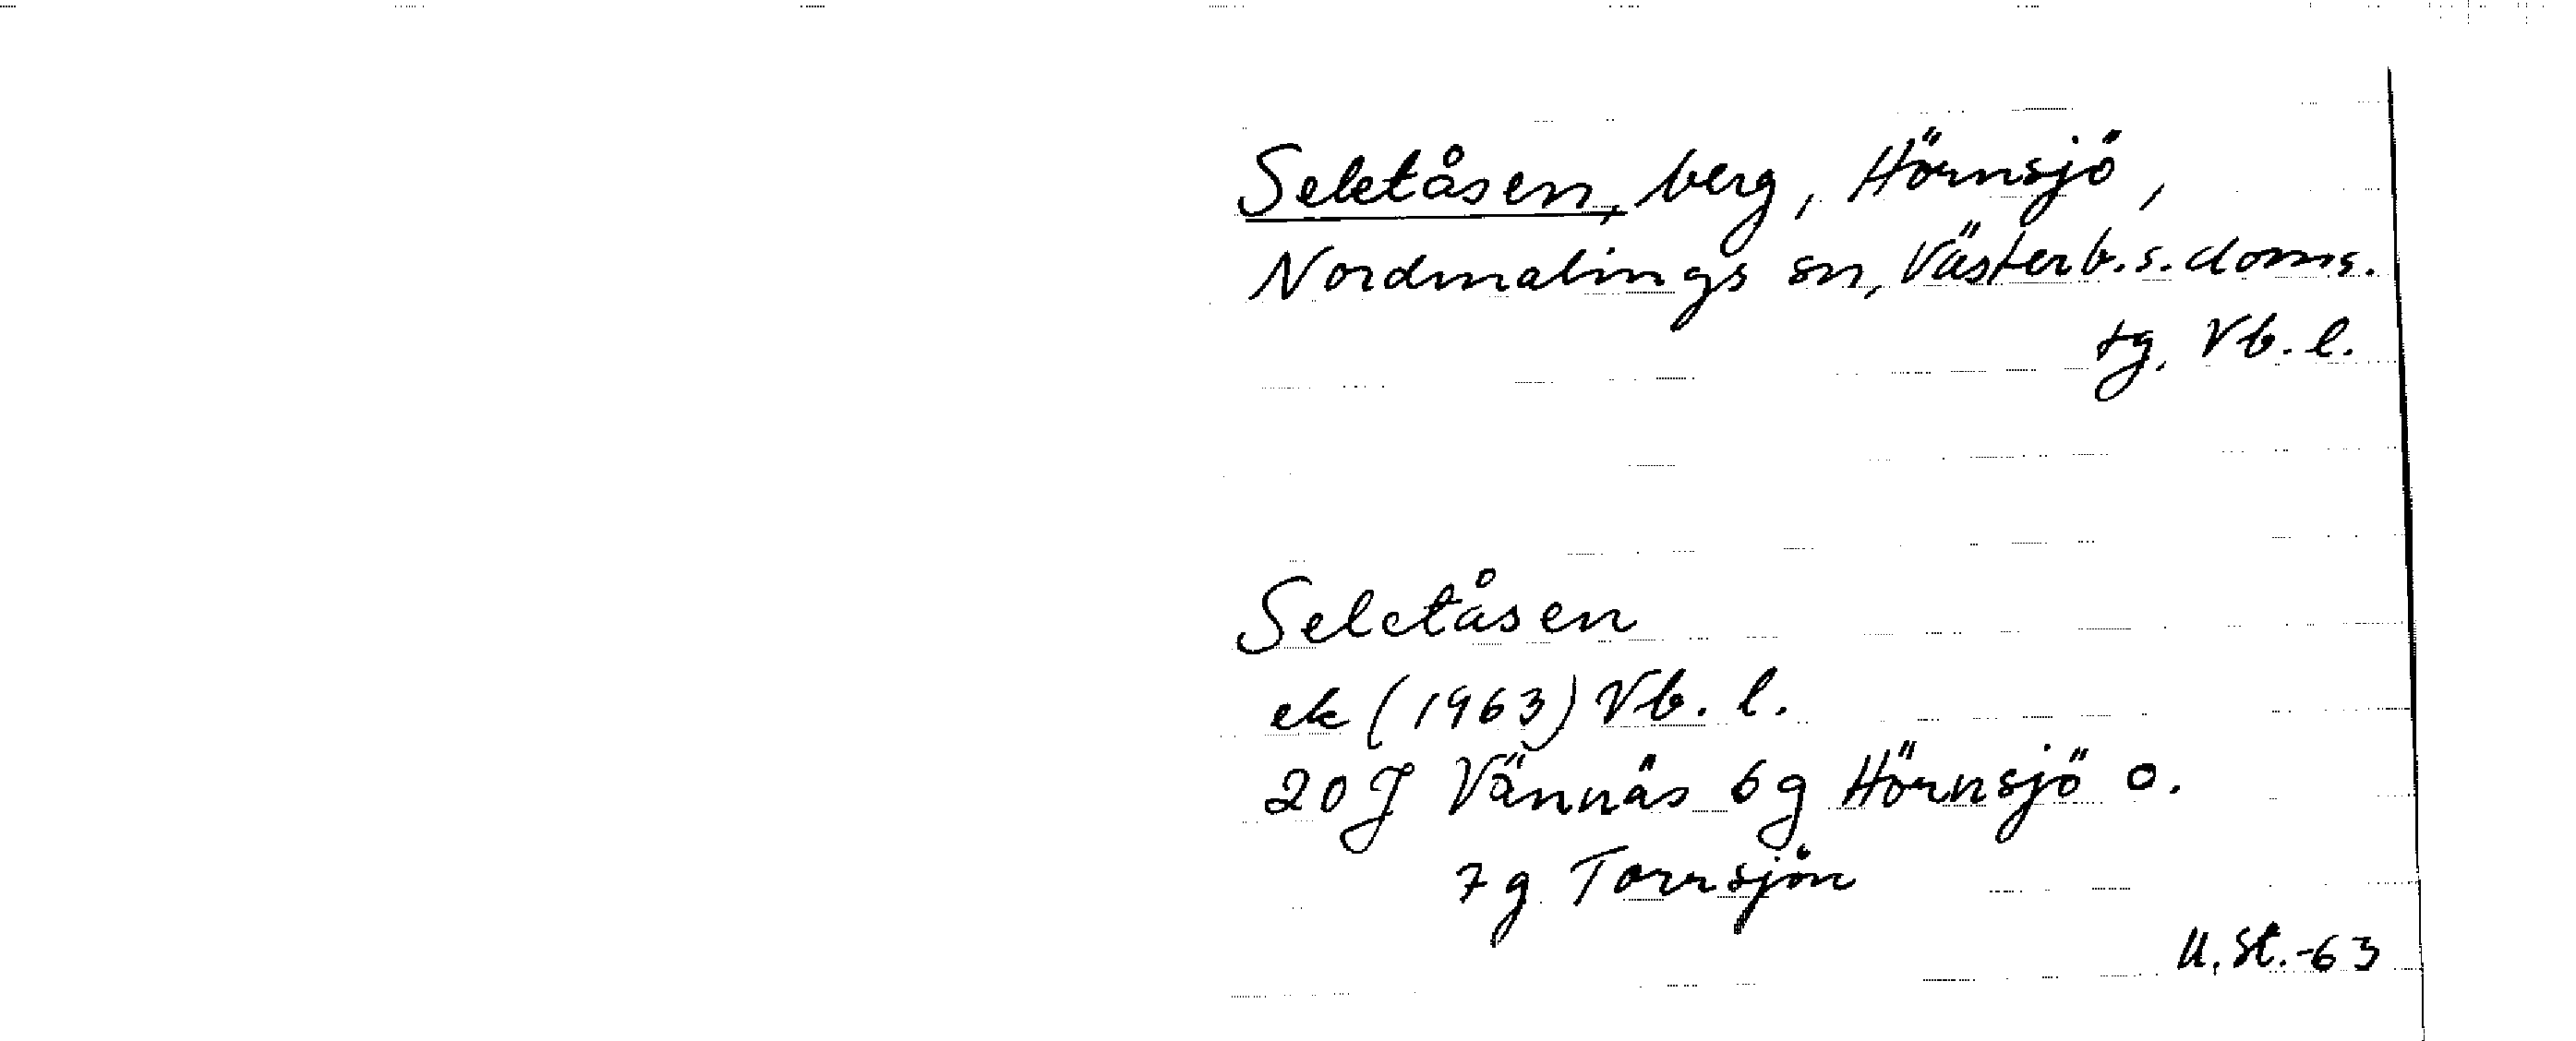 Seletåsen, berg, Hörnsjö,
Nordmalings sn, Västerb. s. doms.
tg. Vb. l.
Seletåsen
ek (1963) Vb. l.
20 J Vännäs 6 g Hörnsjö o.
7 g Torrsjön
U. St. -63